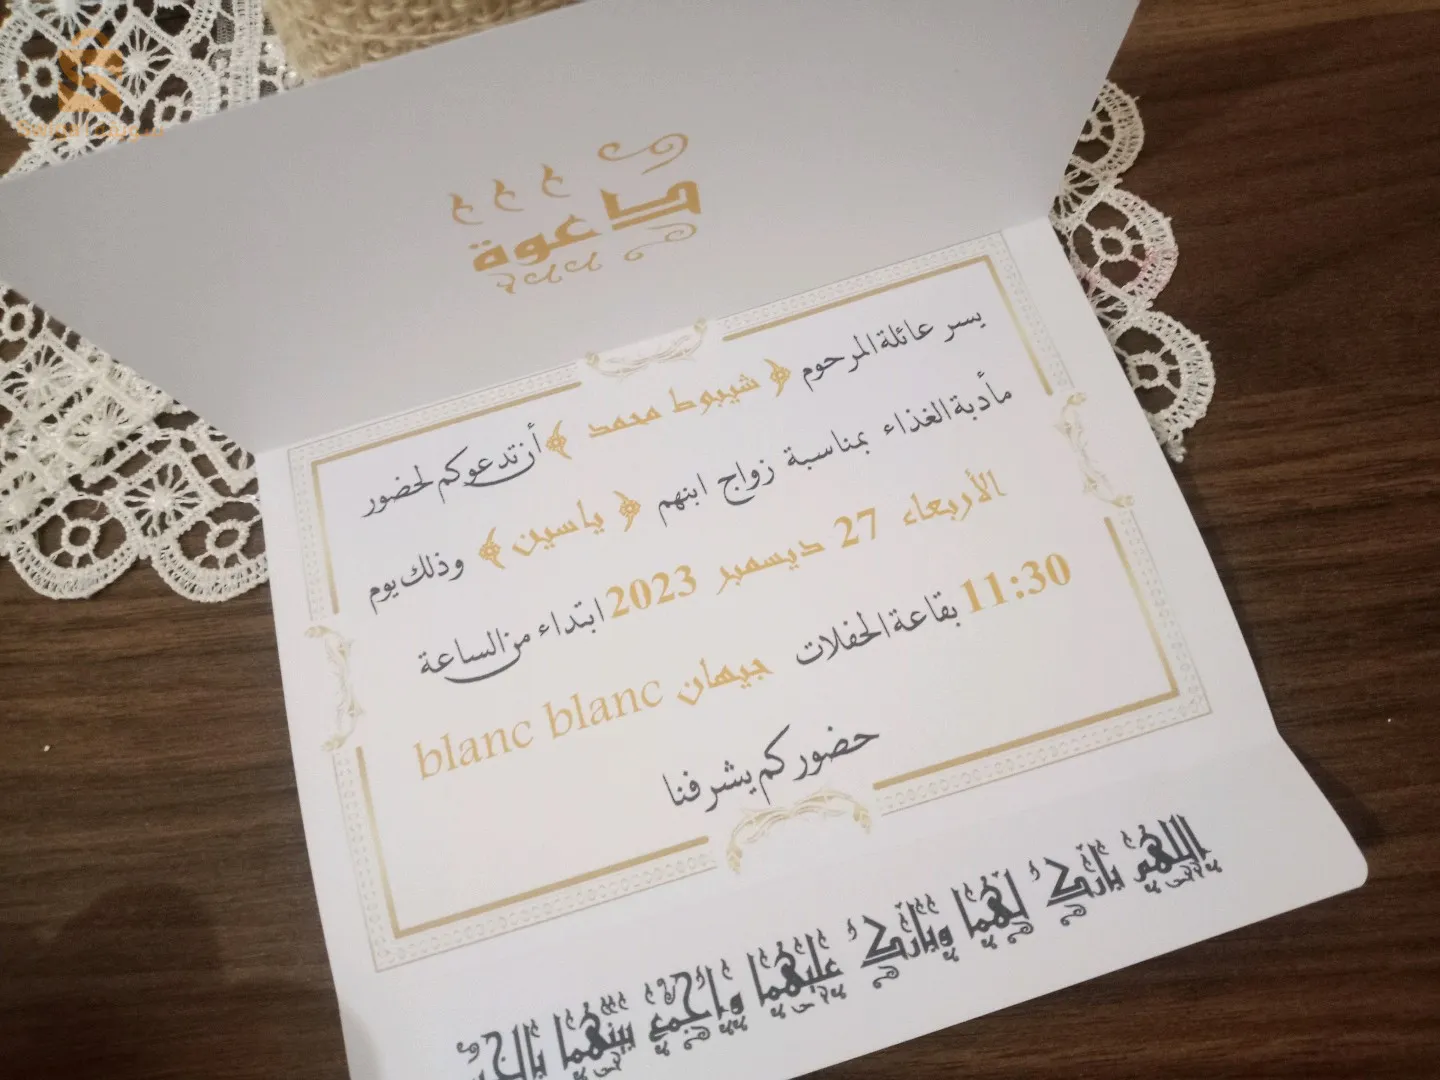 دعوة
يسر عائلة المرحوم ﴿ شيبوط محمد ﴾ أن تدعوكم لحضور
مأدبة الغذاء بمناسبة زواج ابنهم ﴿ ياسين ﴾ وذلك يوم
الأربعاء 27 ديسمبر 2023 ابتداء من الساعة
11:30 بقاعة الحفلات جيهان blanc blanc
حضوركم يشرفنا
اللهم بارك لهما وبارك عليهما واجمع بينهما